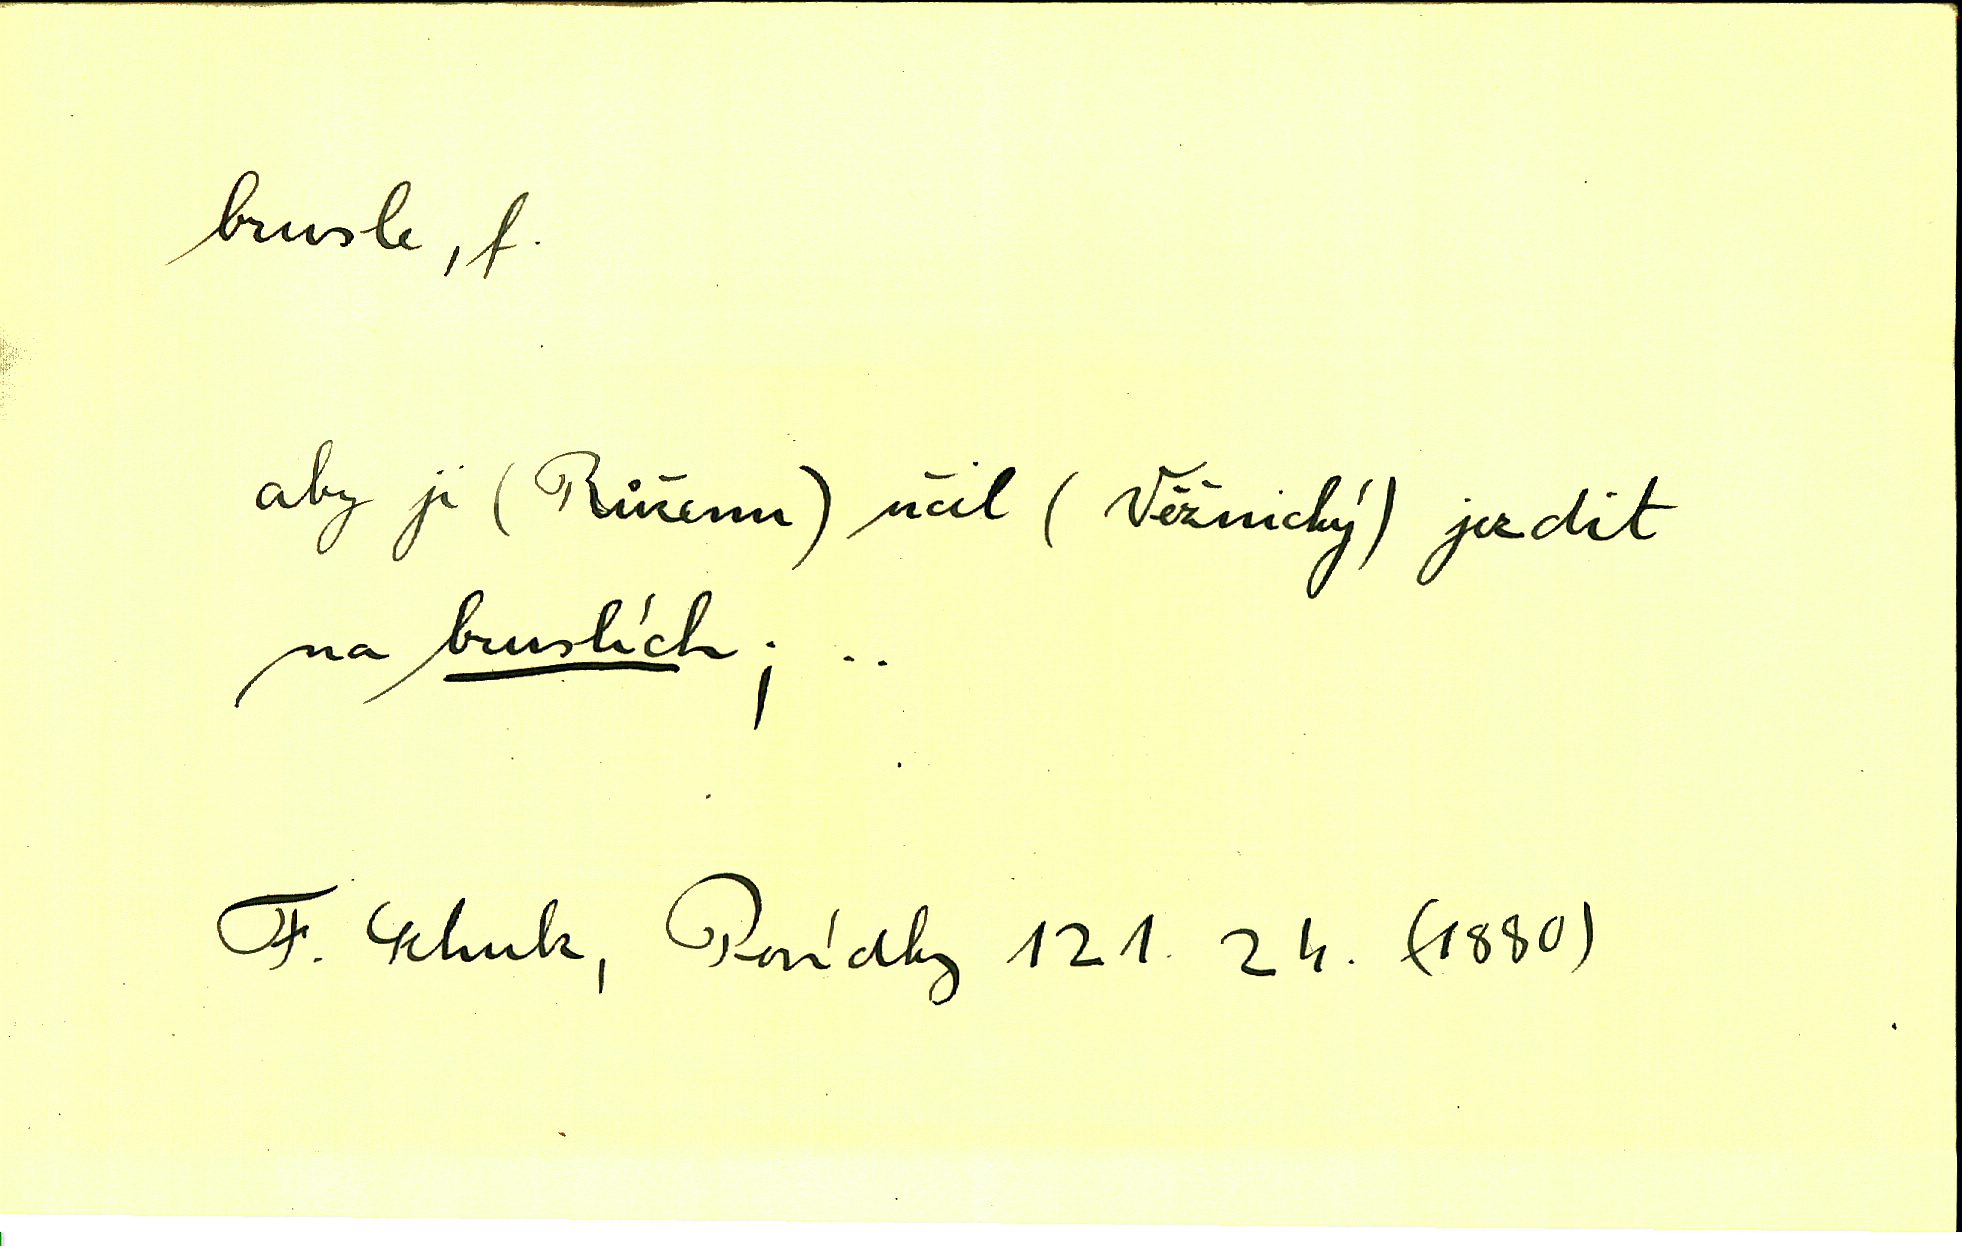 brusle, f.
aby ji (Růženu) učil (Věžnický) jezdit
na bruslích; ..
F. Schulz, Povídky 121. 24. (1880)